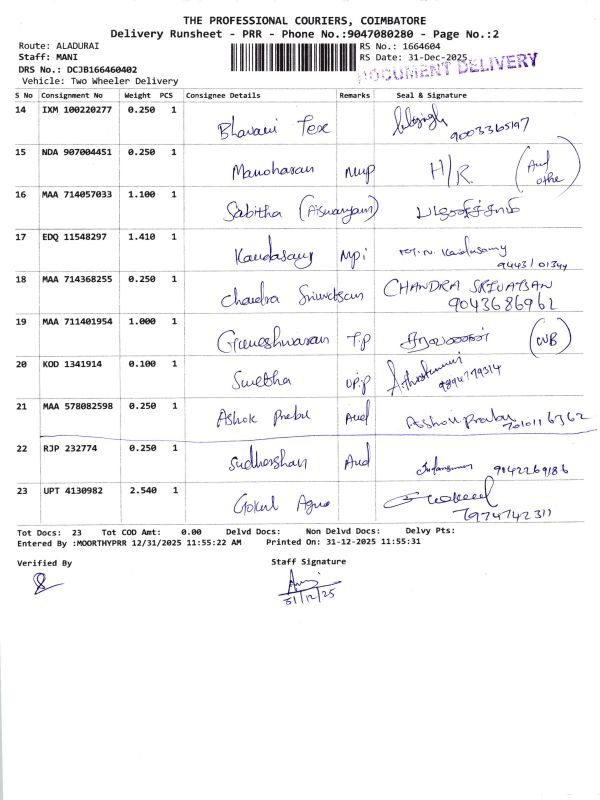 THE PROFESSIONAL COURIERS, COIMBATORE
Delivery Runsheet - PRR - Phone No.:9047080280 - Page No.:2
Route: ALADURAI
RS No.: 1664604
Staff: MANI
RS Date: 31-Dec-2025
DOCUMENT DELIVERY
DRS No.: DCJB166460402
Vehicle: Two Wheeler Delivery
S No Consignment No Weight PCS Consignee Details Remarks Seal & Signature
14 IXM 100220277 0.250 1 Bhavani Tex 9003365197
15 NDA 907004451 0.250 1 Manoharan H/R
16 MAA 714057033 1.100 1 Sabitha (Aiswaryam)
17 EDQ 11548297 1.410 1 Kandasamy Kandasamy
9443101344
18 MAA 714368255 0.250 1 Chandra Srivatsan CHANDRA SRIVATSAN
9043686962
19 MAA 711401954 1.000 1 Ganeshwaran T.p
20 KOD 1341914 0.100 1 Swetha 9894779314
21 MAA 578082598 0.250 1 Ashok Prabu Aud Ashok Prabu
7010116362
22 RJP 232774 0.250 1 Sudhershan Aud 9042269186
23 UPT 4130982 2.540 1 Gokul Agro
7974742311
Tot Docs: 23 Tot COD Amt: 0.00 Delvd Docs: Non Delvd Docs: Delvy Pts:
Entered By :MOORTHYPRR 12/31/2025 11:55:22 AM Printed On: 31-12-2025 11:55:31
Verified By
Staff Signature
31/12/25